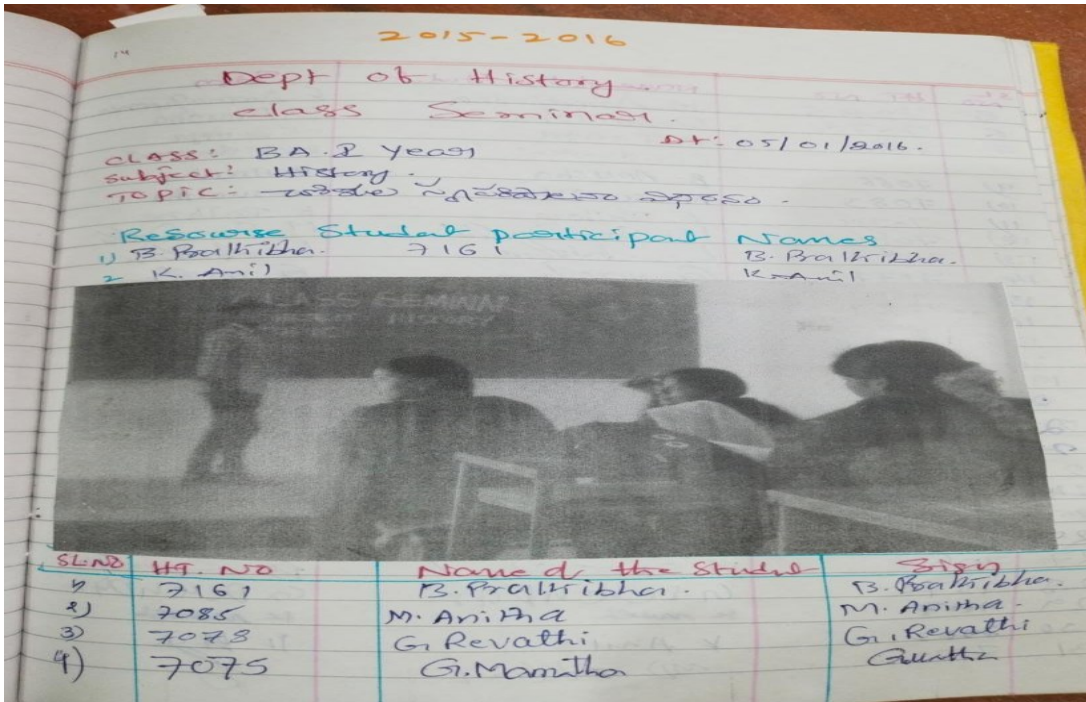 2015-2016
14
Dept of History.
class Seminar.
Dt: 05/01/2016.
CLASS: BA. I Year
Subject: History.
TOPIC:
Resourse Student participant Names
1) B. Prathibha. 7161 B. Prathibha.
2 K. Anil K. Anil
CLASS SEMINAR
HISTORY
SL.NO HT. NO Name of the Student Sign
1) 7161 B. Prathibha. B. Prathibha.
2) 7085 M. Anitha M. Anitha.
3) 7078 G. Revathi G. Revathi
4) 7075 G. Mamitha